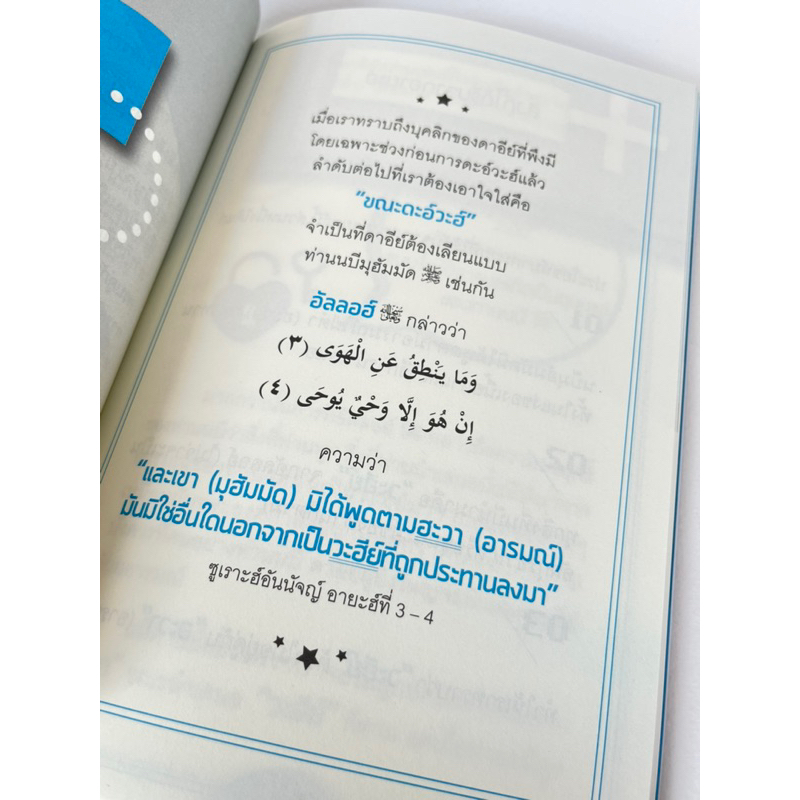 เมื่อเราทราบถึงบุคลิกของดาอีย์ที่พึงมี
โดยเฉพาะช่วงก่อนการดะอ์วะฮ์แล้ว
ลำดับต่อไปที่เราต้องเอาใจใส่คือ
“ขณะดะอ์วะฮ์”
จำเป็นที่ดาอีย์ต้องเลียนแบบ
ท่านนบีมุฮัมมัด ﷺ เช่นกัน
อัลลอฮ์ กล่าวว่า
وَمَا يَنْطِقُ عَنِ الْهَوَى (٣)
إِنْ هُوَ إِلَّا وَحْيٌ يُوحَى (٤)
ความว่า
“และเขา (มุฮัมมัด) มิได้พูดตามฮะวา (อารมณ์)
มันมิใช่อื่นใดนอกจากเป็นวะฮีย์ที่ถูกประทานลงมา”
ซูเราะฮ์อันนัจญ์ อายะฮ์ที่ 3 – 4